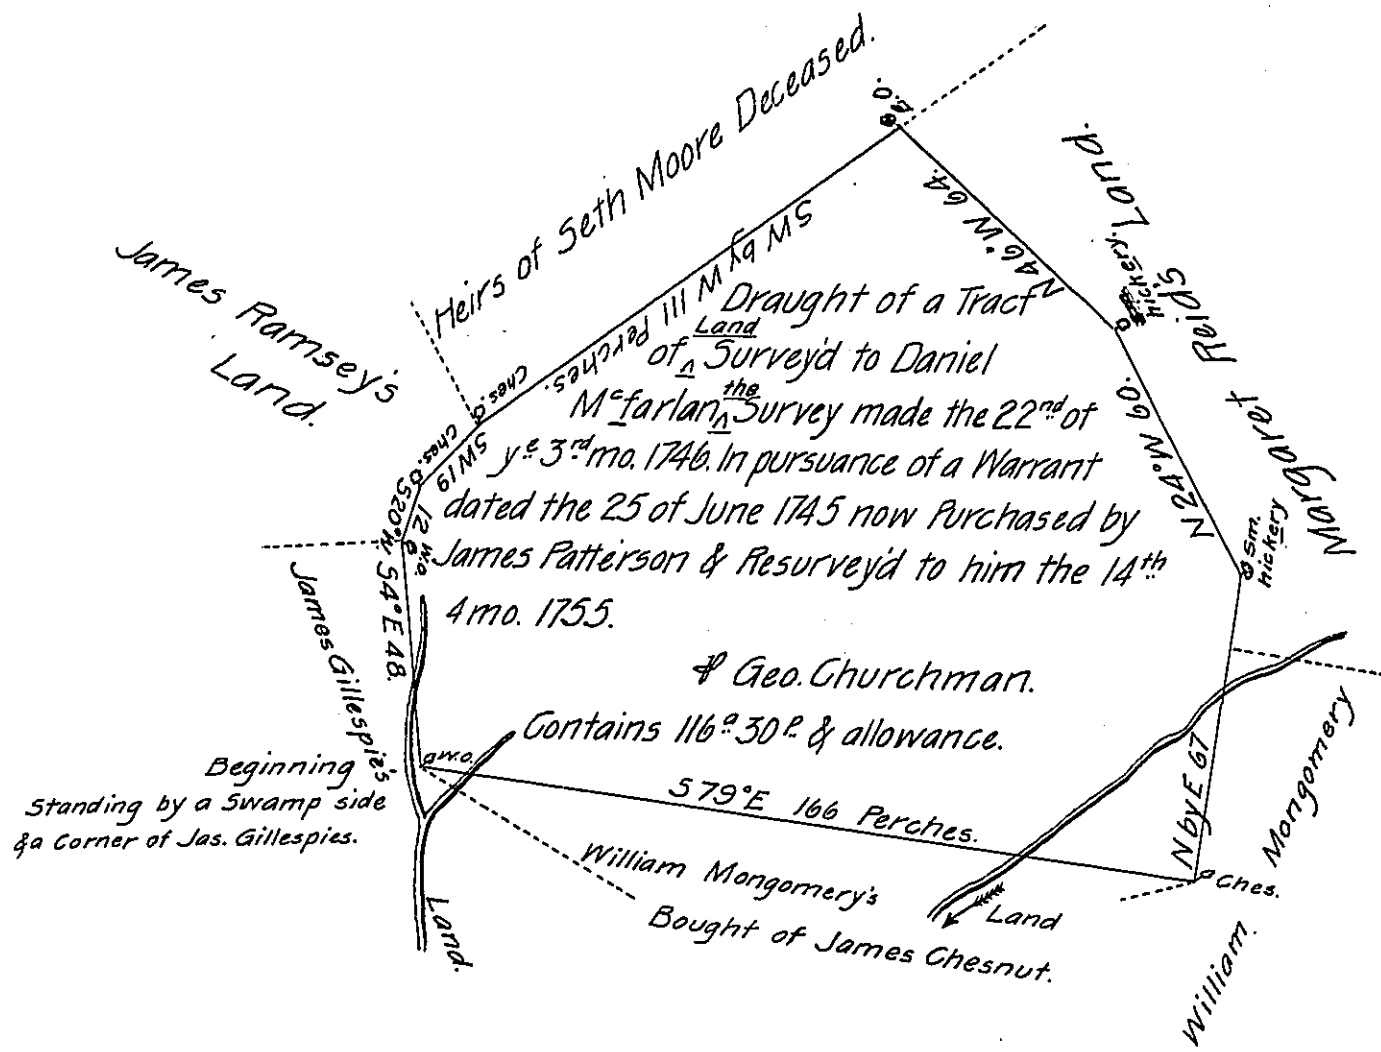 Heirs of Seth Moore Deceased.
B.O.
James Ramsey's
Land.
Margaret Reid's Land.
N 46° W 64.
hickery.
SW by W 111 Perches.
Ches.
Ches.
SW 19
S 20° W
12
N 24° W 60.
Sm.
hickery
Draught of a Tract
of Land Survey'd to Daniel
Mcfarlan, the Survey made the 22nd of
ye 3rd mo. 1746. In pursuance of a Warrant
dated the 25 of June 1745 now Purchased by
James Patterson & Resurvey'd to him the 14th
4 mo. 1755.
Geo. Churchman.
Contains 116a 30P. & allowance.
S 4° E 48.
James Gillespie's
Land.
W.O.
Beginning
Standing by a Swamp side
& a Corner of Jas. Gillespies.
S 79° E 166 Perches.
N by E 67
Ches.
William Mongomery's
Land
Bought of James Chesnut.
William Mongomery